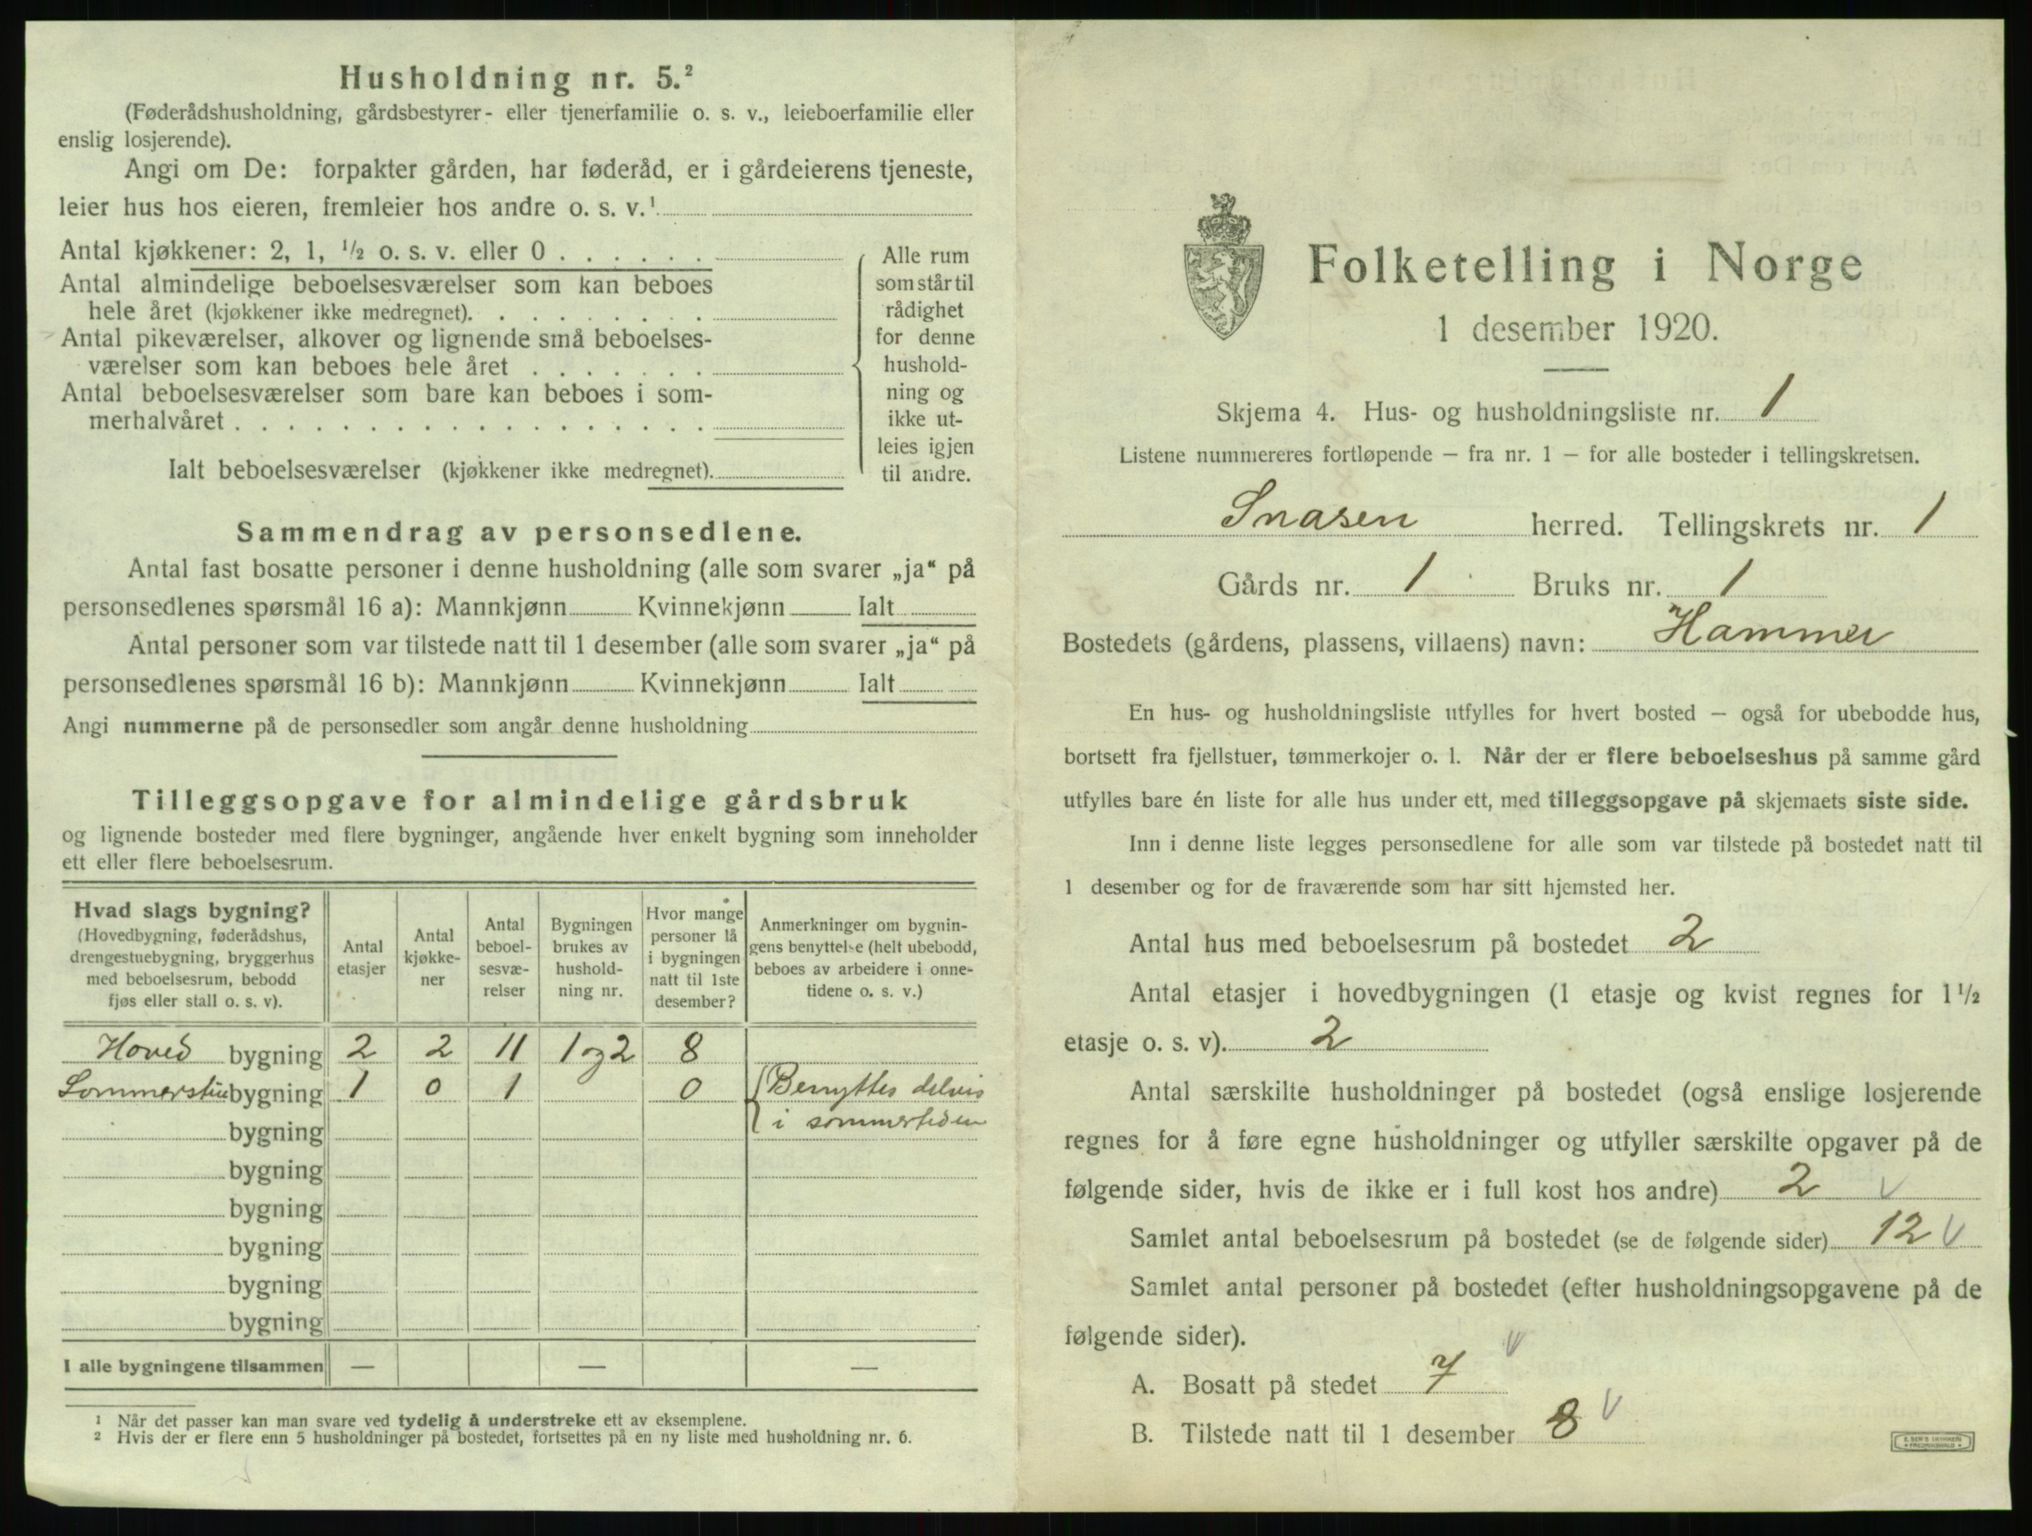 Husholdning nr. 5.²
(Føderådshusholdning, gårdsbestyrer- eller tjenerfamilie o. s. v., leieboerfamilie eller
enslig losjerende).
Angi om De: forpakter gården, har føderåd, er i gårdeierens tjeneste,
leier hus hos eieren, fremleier hos andre o. s. v.¹
Antal kjøkkener: 2, 1, ½ o. s. v. eller 0 . . . . . .
Antal almindelige beboelsesværelser som kan beboes
hele året (kjøkkener ikke medregnet). . . . . . . . .
Antal pikeværelser, alkover og lignende små beboelses-
værelser som kan beboes hele året . . . . . . .
Antal beboelsesværelser som bare kan beboes i som-
merhalvåret . . . . . . . . . . . . . . . . . .
Ialt beboelsesværelser (kjøkkener ikke medregnet).
Alle rum
som står til
rådighet
for denne
hushold-
ning og
ikke ut-
leies igjen
til andre.
Sammendrag av personsedlene.
Antal fast bosatte personer i denne husholdning (alle som svarer „ja“ på
personsedlenes spørsmål 16 a): Mannkjønn Kvinnekjønn Ialt
Antal personer som var tilstede natt til 1 desember (alle som svarer „ja“ på
personsedlenes spørsmål 16 b): Mannkjønn Kvinnekjønn Ialt
Angi nummerne på de personsedler som angår denne husholdning
Tilleggsopgave for almindelige gårdsbruk
og lignende bosteder med flere bygninger, angående hver enkelt bygning som inneholder
ett eller flere beboelsesrum.
Hvad slags bygning?
(Hovedbygning, føderådshus,
drengestuebygning, bryggerhus
med beboelsesrum, bebodd
fjøs eller stall o. s. v).
Antal
etasjer
Antal
kjøkke-
ner
Antal
beboel-
sesvæ-
relser
Bygningen
brukes av
hushold-
ning nr.
Hvor mange
personer lå
i bygningen
natt til 1ste
desember?
Anmerkninger om bygnin-
gens benyttelse (helt ubebodd,
beboes av arbeidere i onne-
tidene o. s. v.)
Hoved bygning 2 2 11 1 og 2 8
Sommerstue bygning 1 0 1 0 Benyttes delvis
bygning i sommertiden
bygning
bygning
bygning
bygning
bygning
I alle bygningene tilsammen — — —
¹ Når det passer kan man svare ved tydelig å understreke ett av eksemplene.
² Hvis der er flere enn 5 husholdninger på bostedet, fortsettes på en ny liste med husholdning nr. 6.
Folketelling i Norge
1 desember 1920.
Skjema 4. Hus- og husholdningsliste nr. 1
Listene nummereres fortløpende – fra nr. 1 – for alle bosteder i tellingskretsen.
Snasen herred. Tellingskrets nr. 1
Gårds nr. 1 Bruks nr. 1
Bostedets (gårdens, plassens, villaens) navn: Hammer
En hus- og husholdningsliste utfylles for hvert bosted – også for ubebodde hus,
bortsett fra fjellstuer, tømmerkojer o. l. Når der er flere beboelseshus på samme gård
utfylles bare én liste for alle hus under ett, med tilleggsopgave på skjemaets siste side.
Inn i denne liste legges personsedlene for alle som var tilstede på bostedet natt til
1 desember og for de fraværende som har sitt hjemsted her.
Antal hus med beboelsesrum på bostedet 2
Antal etasjer i hovedbygningen (1 etasje og kvist regnes for 1½
etasje o. s. v). 2
Antal særskilte husholdninger på bostedet (også enslige losjerende
regnes for å føre egne husholdninger og utfyller særskilte opgaver på de
følgende sider, hvis de ikke er i full kost hos andre) 2
Samlet antal beboelsesrum på bostedet (se de følgende sider) 12
Samlet antal personer på bostedet (efter husholdningsopgavene på de
følgende sider).
A. Bosatt på stedet 7
B. Tilstede natt til 1 desember 8